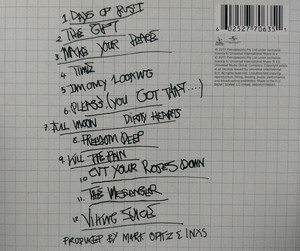 1. DAYS OF RUST
2. THE GIFT
3. MAKE YOUR PEACE
4. TIME
5. IM ONLY LOOKING
6. PLEASE (YOU GOT THAT....)
7. FULL MOON DIRTY HEARTS
8. FREEDOM DEEP
9. KILL THE PAIN
10. CUT YOUR ROSES DOWN
11. THE MESSENGER
12. VIKING JUICE
PRODUCED BY MARK OPITZ & INXS
6 02527 70635